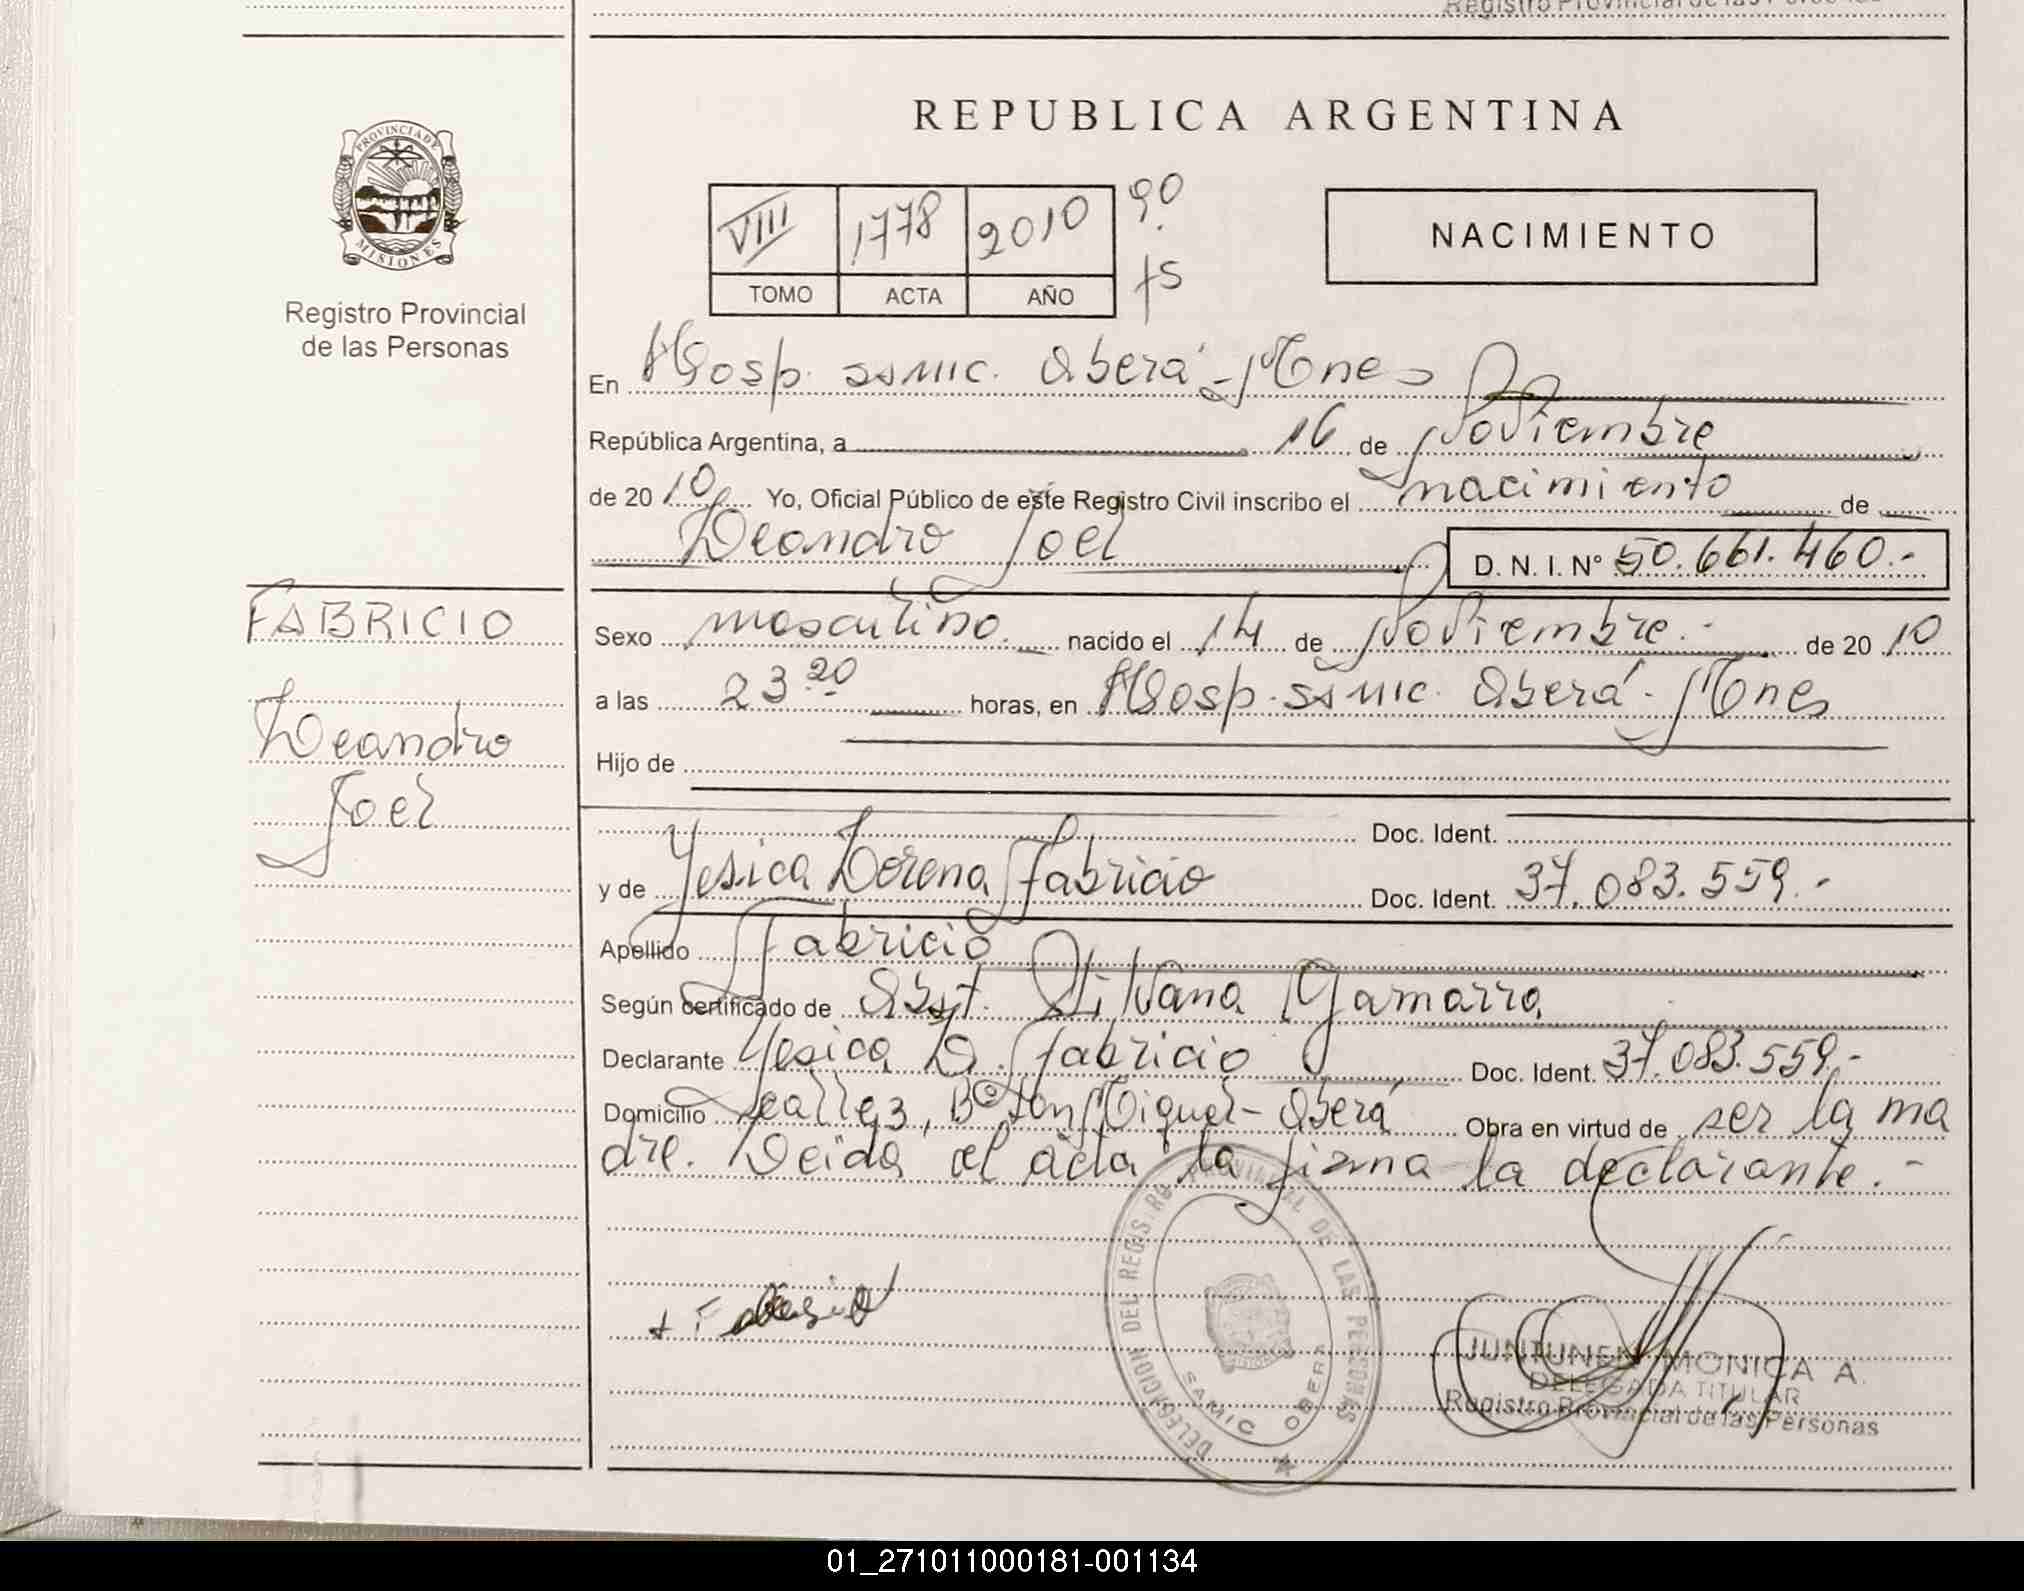 Registro Provincial de las Personas
REPUBLICA ARGENTINA
PROVINCIA DE
MISIONES
Registro Provincial
de las Personas
VIII 1778 2010 90
TOMO ACTA AÑO fs
NACIMIENTO
En Hosp. SAMIC. Oberá - Mnes
República Argentina, a 16 de Noviembre
de 20 10 Yo, Oficial Público de este Registro Civil inscribo el nacimiento de
Leandro Joel D. N. I. Nº 50.661.460.-
FABRICIO
Leandro
Joel
Sexo masculino nacido el 14 de Noviembre.- de 20 10
a las 23 20 horas, en Hosp. SAMIC. Oberá - Mnes
Hijo de
Doc. Ident.
y de Yesica Lorena Fabricio Doc. Ident. 37.083.559.-
Apellido Fabricio
Según certificado de Obst. Silvana Gamarra
Declarante Yesica L. Fabricio Doc. Ident. 37.083.559.-
Domicilio Calle 3, Bº San Miguel - Oberá Obra en virtud de ser la ma
dre. Leida el acta la firma la declarante.-
DELEGACION DEL REGISTRO PROVINCIAL DE LAS PERSONAS
SAMIC OBERA
+ Fabricio
JUNTUNEN MONICA A.
DELEGADA TITULAR
Registro Provincial de las Personas
01_271011000181-001134